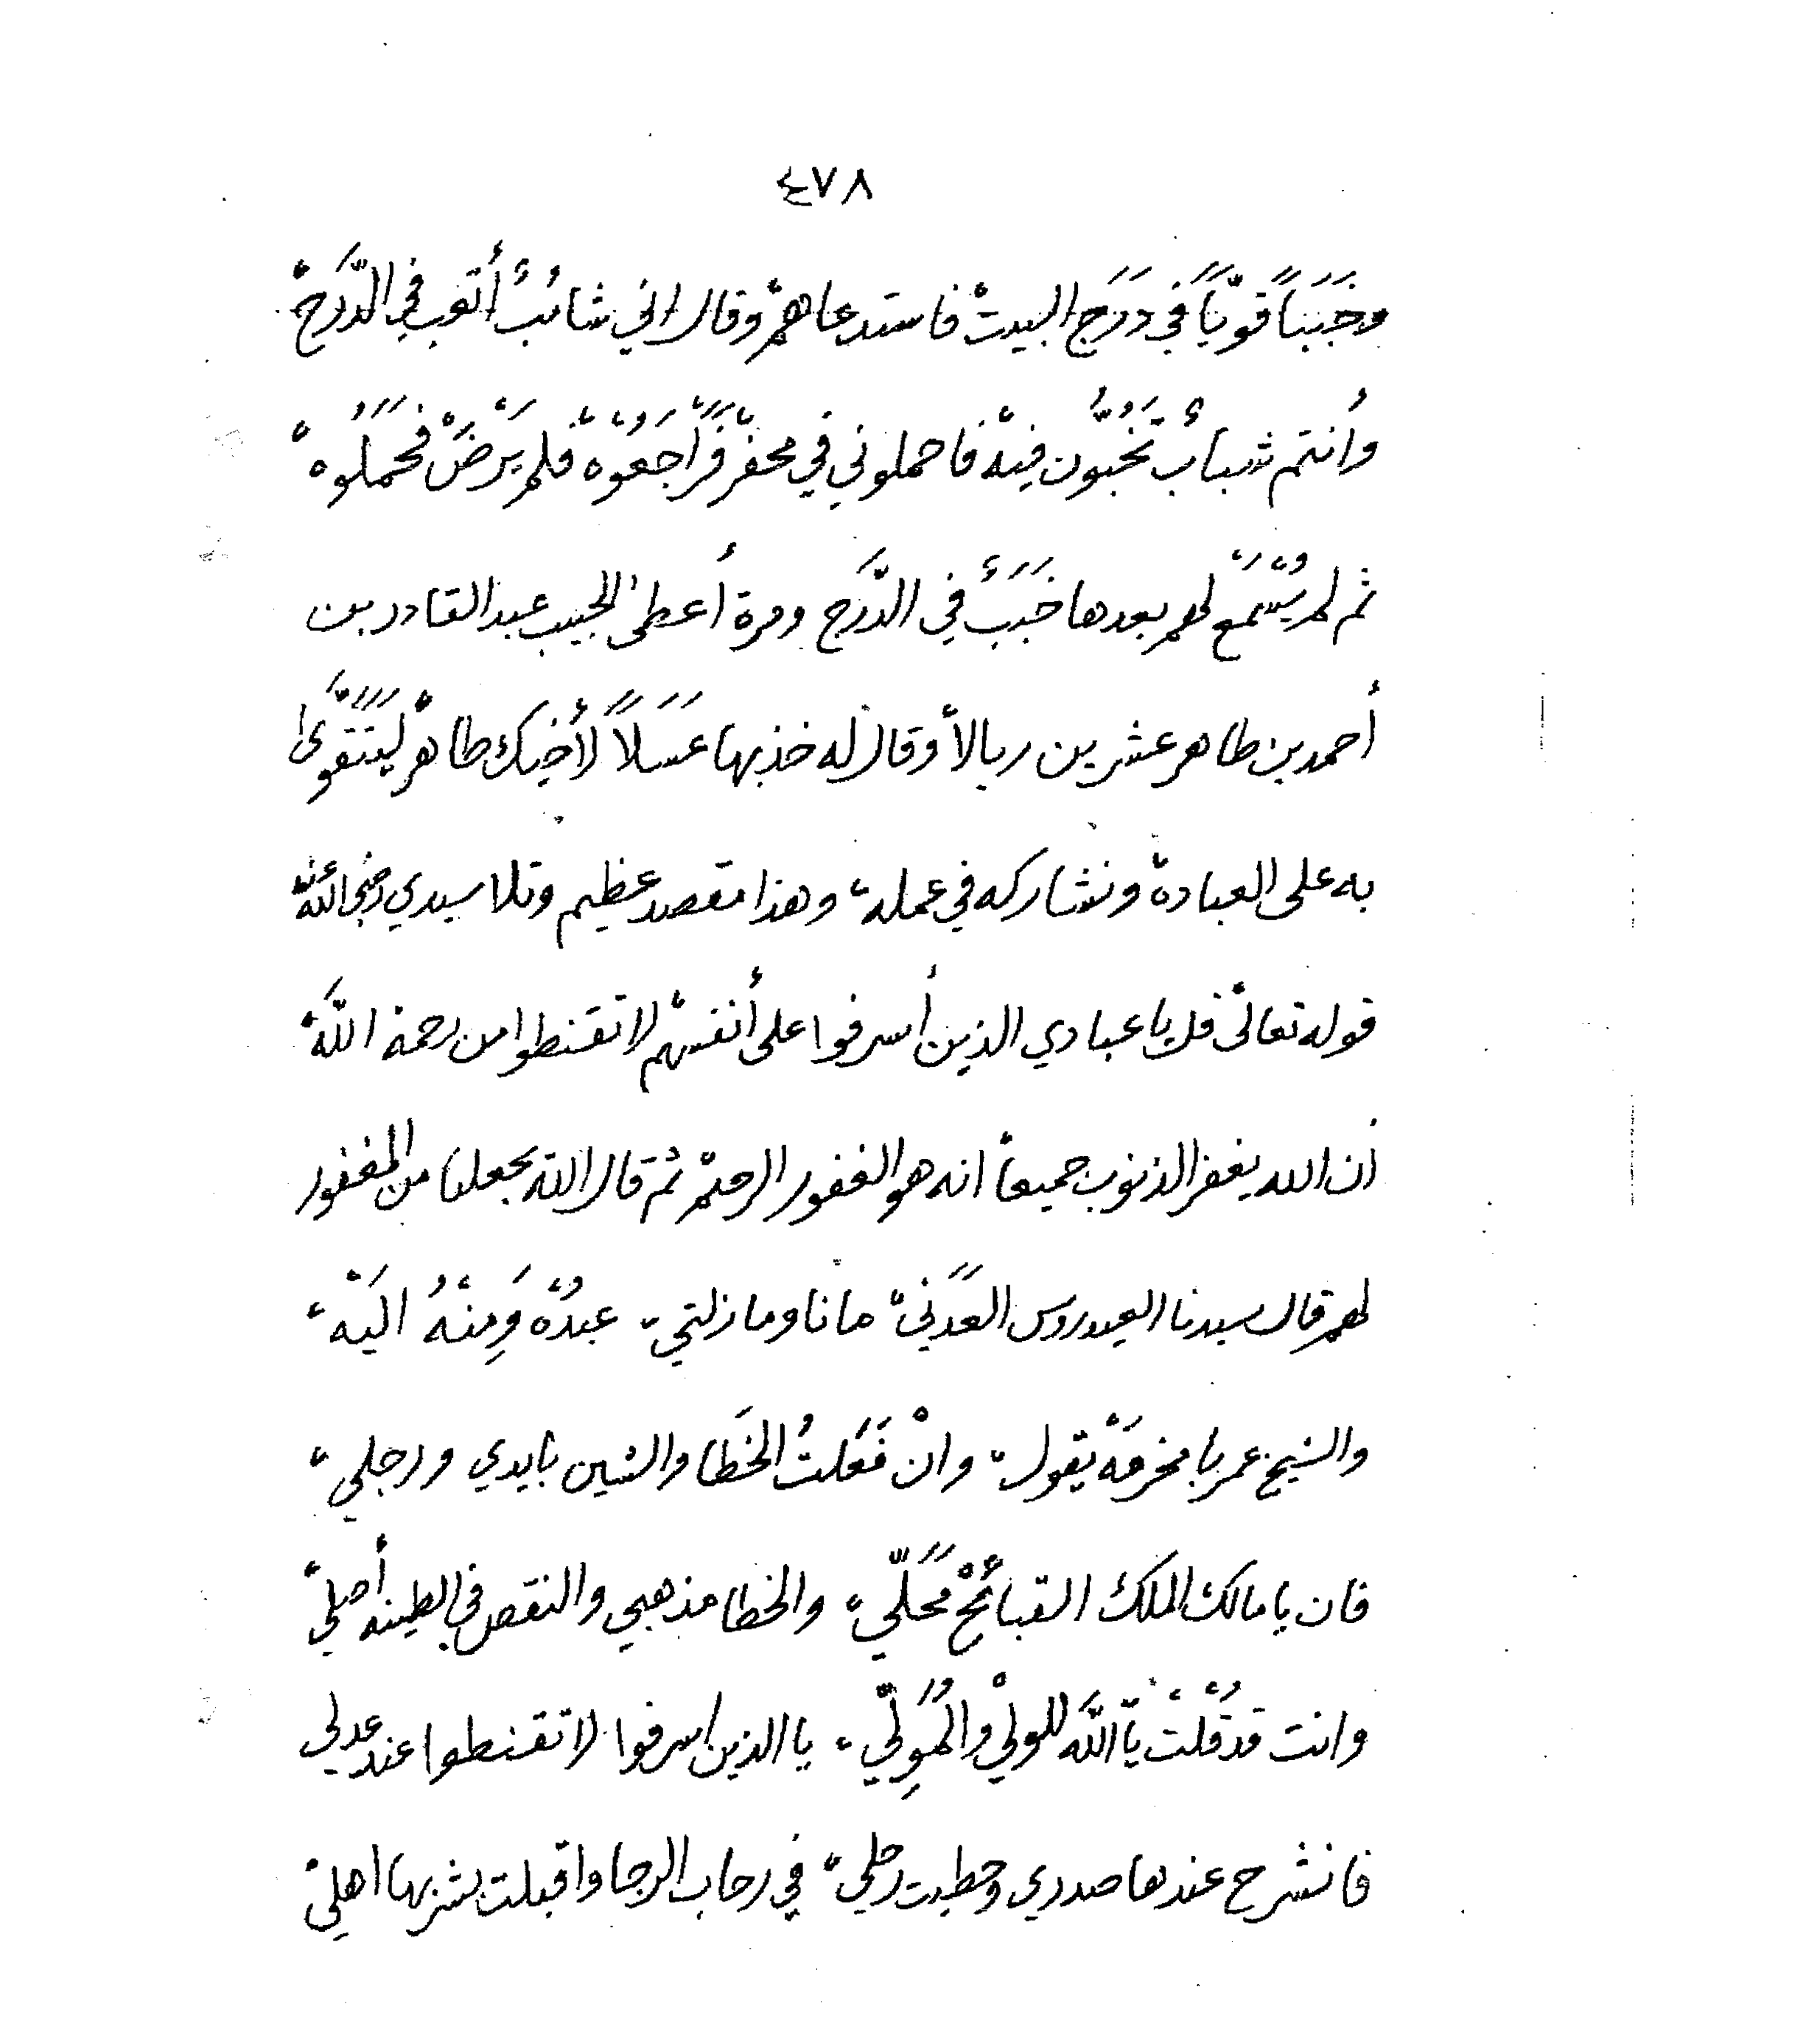 ٤٧٨
وخَبَباً قوّياً في دَرَج البيت فاستدعاهم وقال اني شائب أتعب في الدَّرَج
وأنتم شباب تَخُبُّون فيه فاحملوني في محفّ فَراجَعُوه فلم يَرْضَ فحَمَلُوه
ثم لم يُسْمَع لهم بعدها خَبَبٌ في الدَّرَج ومرة أعطى الحبيب عبد القادر بن
أحمد بن طاهر عشرين ريالاً وقال له خذ بها عَسَلاً لأخيك طاهر ليَتَقَوَّى
به على العبادة ونشاركه في عمله، وهذا مقصد عظيم وتلا سيدي رضي الله عنه
قوله تعالى قل يا عبادي الذين أسرفوا على أنفسهم لا تقنطوا من رحمة اللَّه
ان الله يغفر الذنوب جميعاً انه هو الغفور الرحيم ثم قال الله يجعلنا من المغفور
لهم قال سيدنا العيدروس العَدَني مانا وما زلتي، عبدُه وَمِنْهُ الَيْه،
والشيخ عمر بامخرمَة يقول، وانْ فَعَلتُ الخَطَا والشين بايدي ورجلي،
فان يا مالك الملك القبائح مَحَلّي، والخطا مذهبي والنقص في الطينه أصلي
وانت قد قُلْت يَاللَّه للولي والمُوَلِّي، يا الذين اسرفوا لا تقنطوا عند عدلي
فانشرح عندها صدري وحطيت رحلي، في رحاب الرجا واقبلت بشر بها اهلي